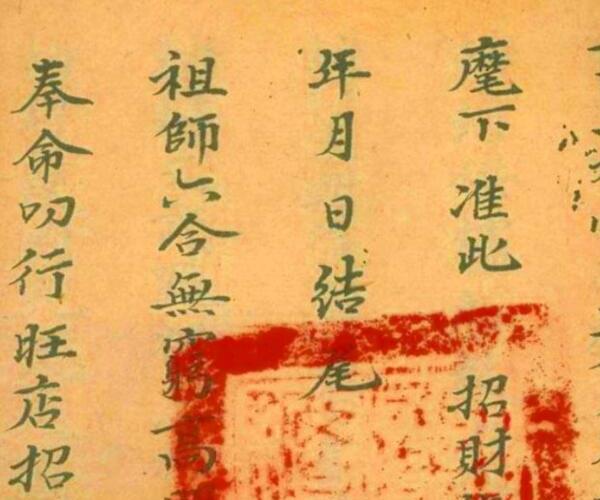 麾下准此 招財
年月日結尾
祖師六合無窮高
奉命叨行旺店招